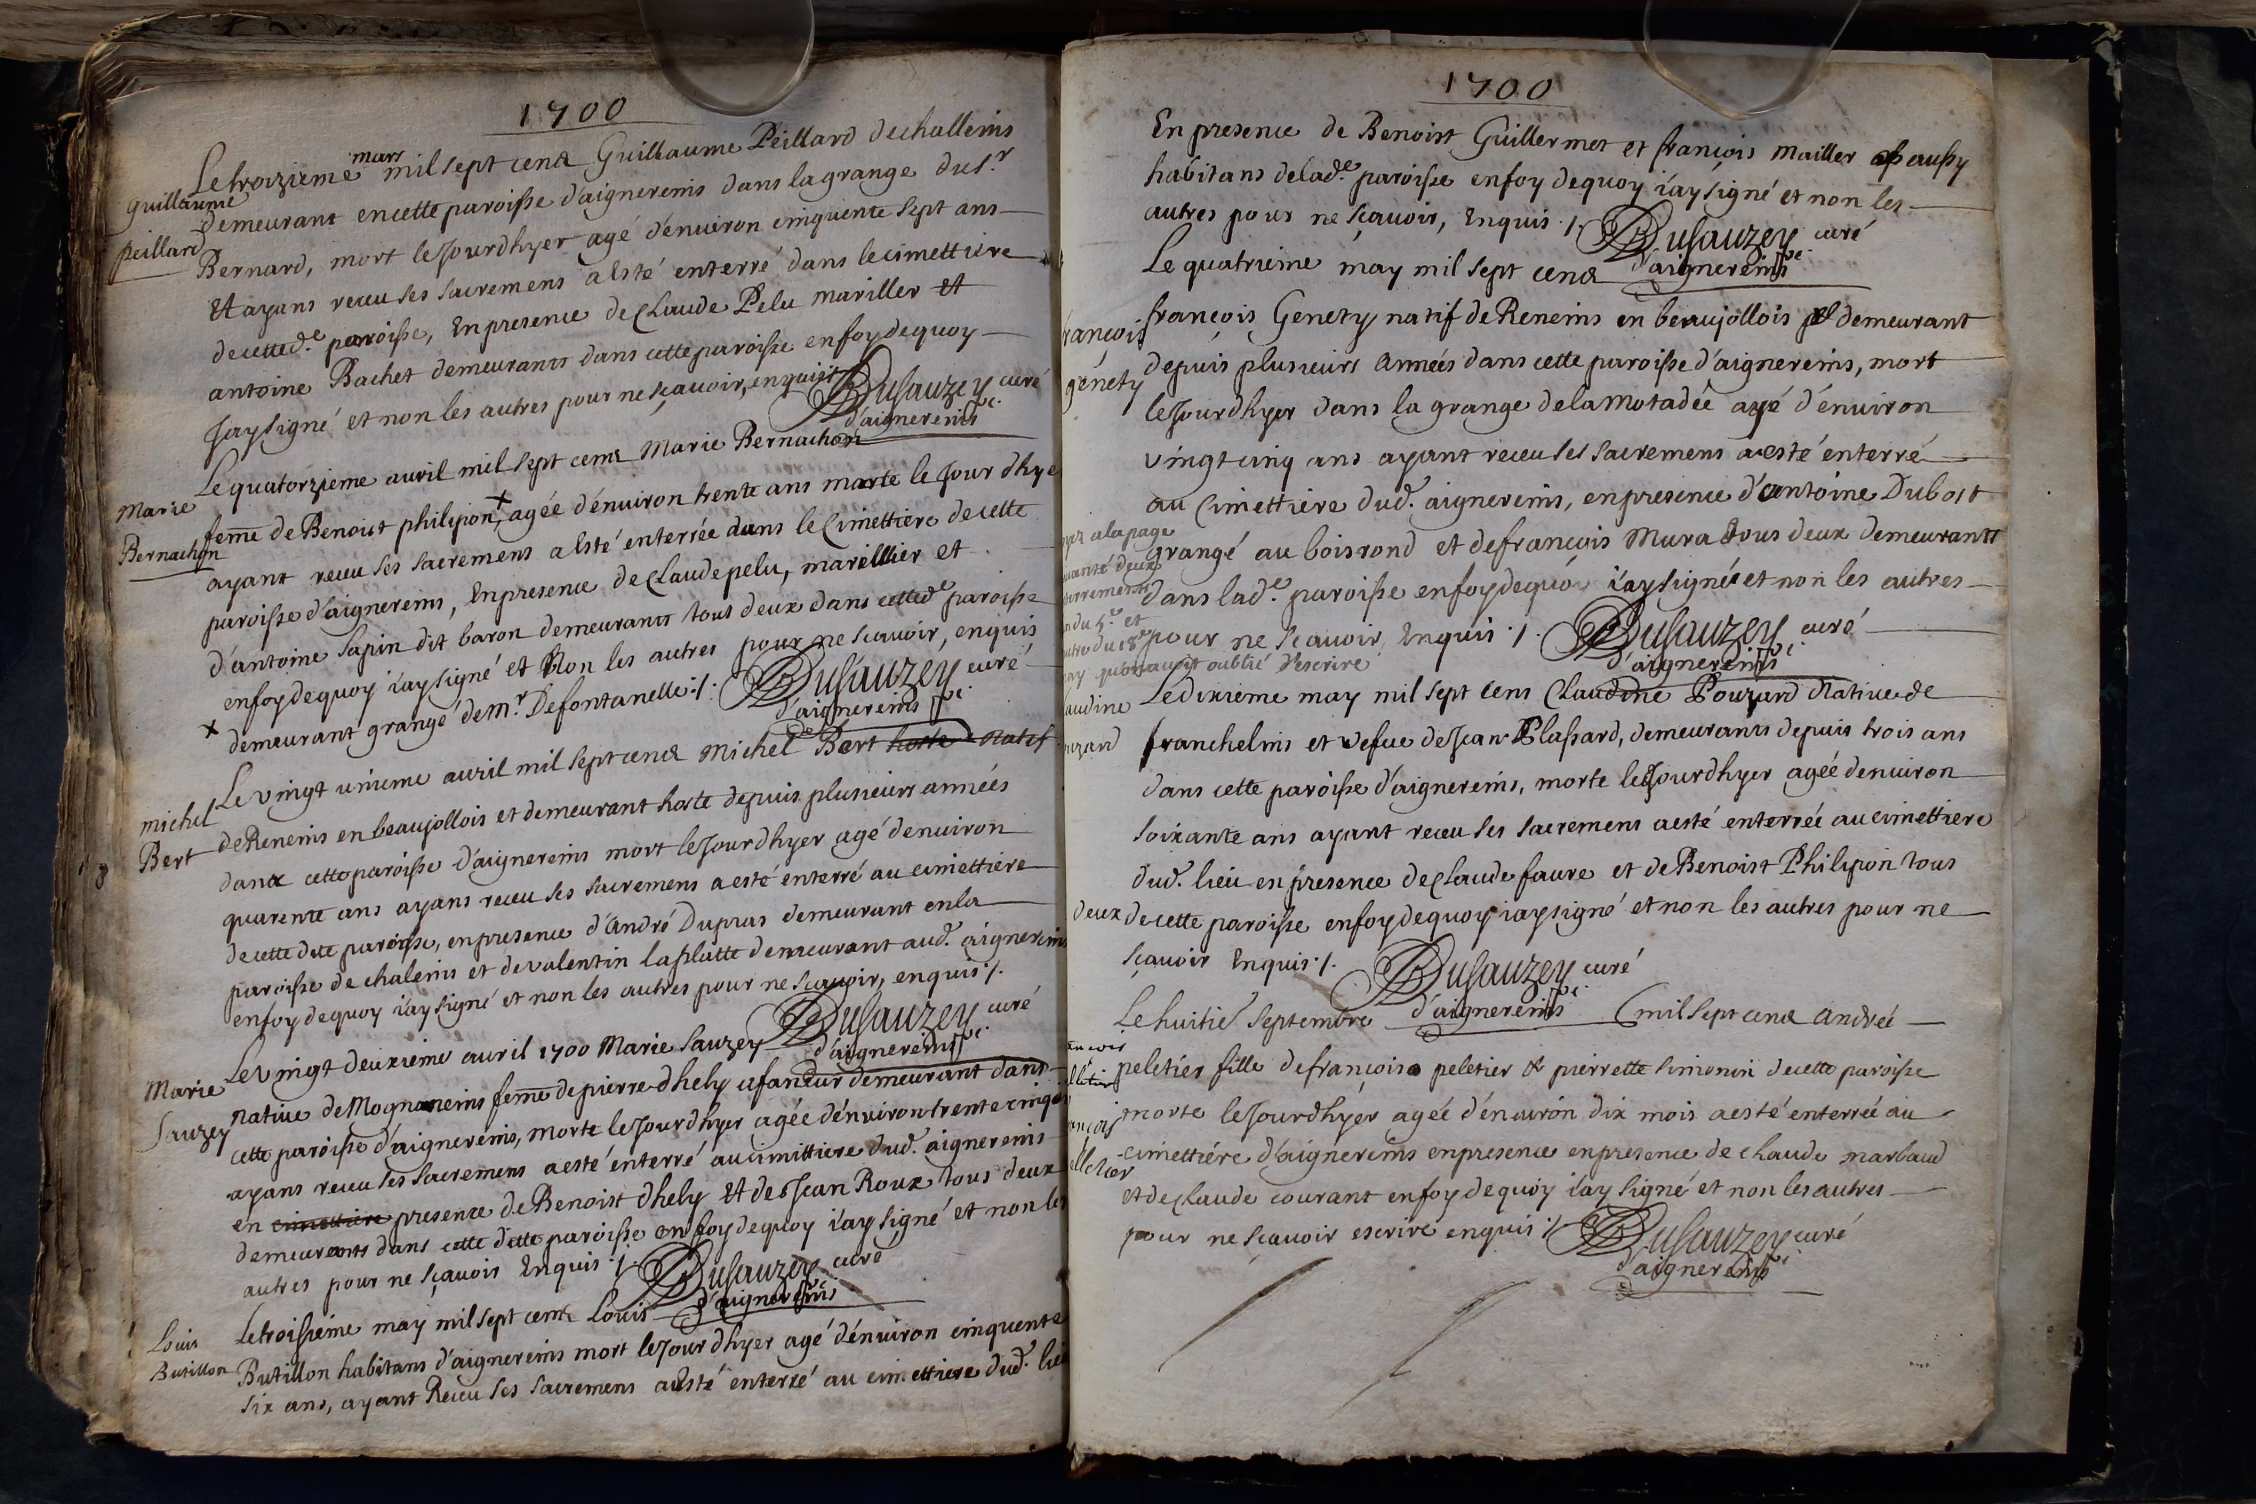 1700
Le troizieme mars mil sept cens Guillaume Peillard de challeins
Guillaume
demeurant en cette paroisse d'aignereins dans la grange du sr.
peillard
Bernard, mort le Jourdhyer agé d'enuiron cinquente sept ans
Et ayans receu ses sacremens a Esté enterré dans le cimettiere
de cette de. paroisse, En presence de Claude Pelu mariller et
antoine Bachet demeurants dans cette paroisse en foy de quoy
Jay signé et non les autres pour ne sçauoir, enquis Dusauzey curé
d'aignereins
Le quatorzieme auril mil sept cens Marie Bernachon
Marie
feme de Benoit philipon, + agée d'enuiron trente ans morte le Jour dhyer
Bernachon
ayant receu ses sacremens a Esté enterrée dans le Cimettiere de cette
paroisse d'aignereins, En presence de Claude pelu, marillier et
d'antoine sapin dit baron demeurants tous deux dans cette de. paroisse
en foy de quoy i'ay signé et Non les autres pour ne scauoir, enquis
+ demeurant grangé de mr. Defontanelle ./. Dusauzey curé
d'aignereins
Le vingt unieme auril mil sept cens Michel Bert hoste natif
michel
de Reneins en beaujollois et demeurant hoste depuis plusieurs années
Bert
dans cette paroisse d'aignereins mort le Jourdhyer agé denuiron
quarente ans ayans receu ses sacremens a esté enterré au cimettiere
de cette dte paroisse, en presence d'André Dupras demeurant en la
paroisse de chaleins et de valentin laplatte demeurant aud. aignereins
en foy de quoy i'ay signé et non les autres pour ne scauoir, enquis ./.
Dusauzey curé
d'aignereins
Le vingt deuxieme auril 1700 Marie Sauzey
Marie
natiue de Mogneneins feme de pierre dhely afaneur demeurant dans
Sauzey
cette paroisse d'aignereins, morte le Jourdhyer agée d'enuiron trente cinq
ayans receu ses sacremens a esté enterré au cimittiere dud. aignereins
en cimettiere presence de Benoist dhely Et de Jean Roux tous deux
demeurants dans cette dette paroisse en foy de quoy i'ay signé et non les
autres pour ne sçauoir Enquis ./. Dusauzey curé
d'aignereins
Le troisieme may mil sept cens Louis
Louis
Butillon habitans d'aignereins mort le Jour dhyer agé d'enuiron cinquente
Butillon
six ans, ayant Receu ses sacremens a Esté enterré au cimettiere dud. lieu
1700
En presence de Benoist Guillermet et françois mailler aussy
habitans de lade. paroisse en foy de quoy i'ay signé et non les
autres pour ne sçauoir, Enquis ./. Dusauzey curé
d'aignereins
Le quatrieme may mil sept cens
françois Genety natif de Reneins en beaujollois demeurant
françois
depuis plusieurs Années dans cette paroisse d'aignereins, mort
genety
le Jourdhyer dans la grange de la motadée agé d'enuiron
vingt cinq ans ayant receu ses sacremens a esté enterré
au Cimettiere dud. aignereins, en presence d'antoine Dubost
a la page
grangé au bois rond et de françois Mura tous deux demeurants
deux
dans lad.e paroisse en foy de quoy i'ay signé et non les autres
du 5e. et
pour ne scauoir, Enquis ./. Dusauzey curé
d'aignereins
oublié d'escrire
Le dixieme may mil sept cens Claudine Pouzard Natiue de
audine
franchelins et vefue de Jean Plassard, demeurants depuis trois ans
uzard
dans cette paroisse d'aignereins, morte le Jourdhyer agée denuiron
soixante ans ayant receu ses sacremens a esté enterrée au cimettiere
dud. lieu en presence de Claude faure et de Benoist Philipon tous
deux de cette paroisse en foy de quoy i'ay signé et non les autres pour ne
sçauoir Enquis ./. Dusauzey curé
d'aignereins
Le huitie septembre mil sept cens Andreé
peletier fille de françois peletier & pierrette simonin de cette paroisse
morte le Jourdhyer agée d'enuirón dix mois a esté enterrée au
cimettiére d'aignereins en presence en presence de Claude marbaud
et de Claude courant en foy de quoy i'ay signé et non les autres
pour ne sçauoir escrire enquis ./. Dusauzey curé
d'aignereins